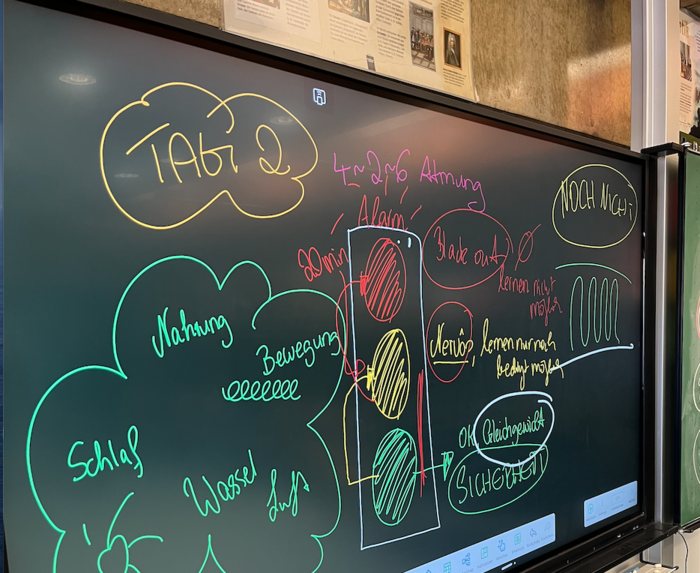 TAG 2
4~2~6 Atmung
Alarm
20min
Black out
lernen nicht
möglich
NOCH NICHT
Nahrung
Bewegung
Nervös, lernen nur noch
bedingt möglich
Schlaf
Wasser
Luft
OK, Gleichgewicht
SICHERHEIT